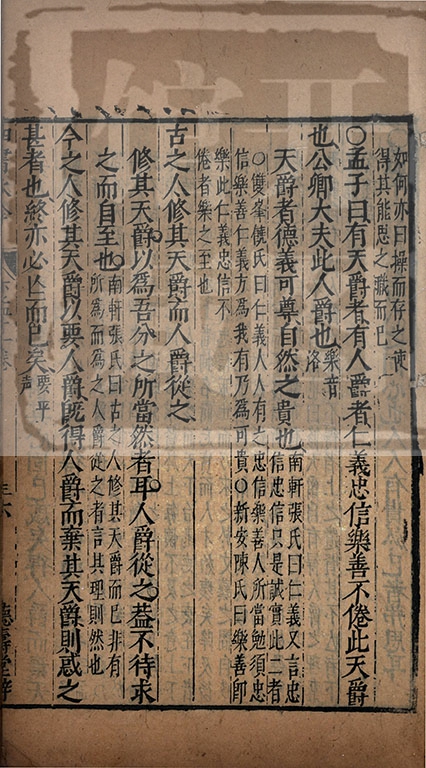 如何亦曰操而存之使
得其能思之職而已
○孟子曰有天爵者有人爵者仁義忠信樂善不倦此天爵
也公卿大夫此人爵也樂音
洛
天爵者德義可尊自然之貴也南軒張氏曰仁義又言忠
信忠信只是誠實此二者
○雙峯饒氏曰仁義人人有之忠信樂善人所當勉須忠
信樂善仁義方為我有乃為可貴○新安陳氏曰樂善即
樂此仁義忠信不
倦者樂之至也
古之人修其天爵而人爵從之
修其天爵以為吾分之所當然者耳人爵從之蓋不待求
之而自至也南軒張氏曰古之人修其天爵而已非有
所為而為之人爵從之者言其理則然也
今之人修其天爵以要人爵既得人爵而棄其天爵則惑之
甚者也終亦必亡而已矣要平
聲
德壽堂梓